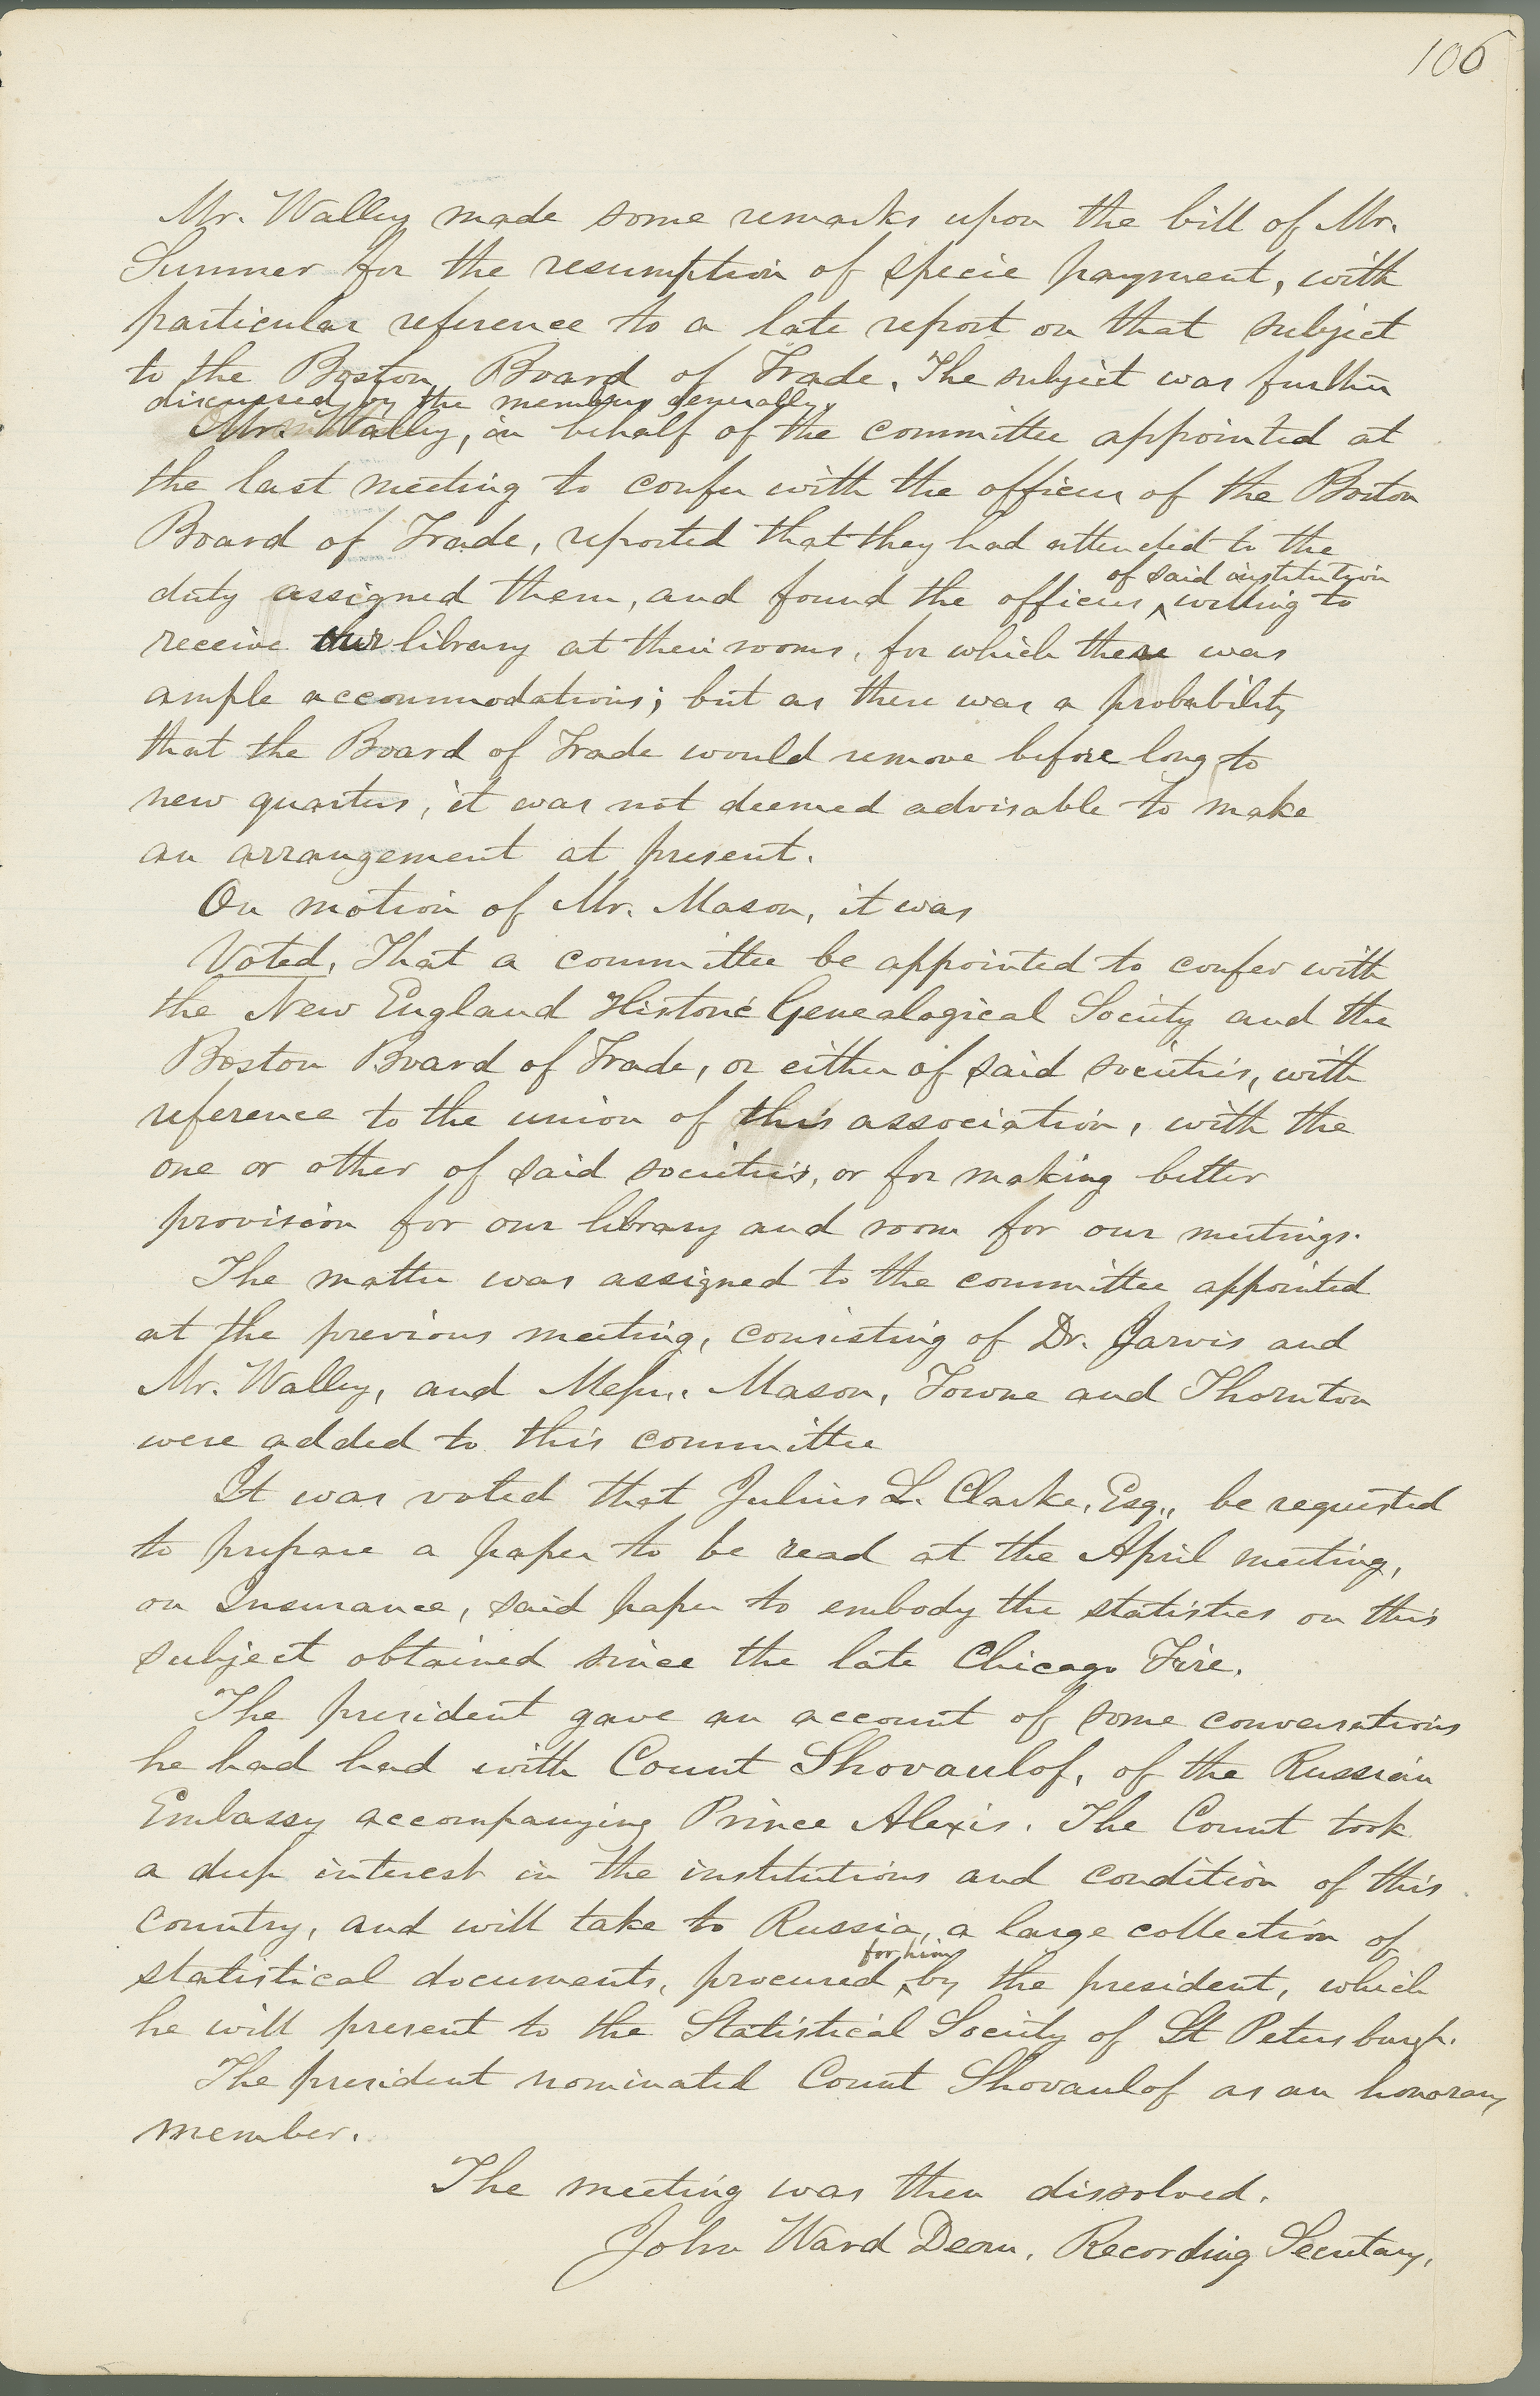 106
Mr. Walley made some remarks upon the bill of Mr.
Sumner for the resumption of specie payment, with
particular reference to a late report on that subject
to the Boston Board of Trade. The subject was further
discussed by the members generally.
Mr. Walley, in behalf of the committee appointed at
the last meeting to confer with the officers of the Boston
Board of Trade, reported that they had attended to the
of said institution
duty assigned them, and found the officers ^ willing to
receive our library at their rooms, for which there was
ample accommodations; but as there was a probability
that the Board of Trade would remove before long to
new quarters, it was not deemed advisable to make
an arrangement at present.
On motion of Mr. Mason, it was
Voted, That a committee be appointed to confer with
the New England Historic Genealogical Society and the
Boston Board of Trade, or either of said societies, with
reference to the union of this association, with the
one or other of said societies, or for making better
provision for our library and room for our meetings.
The matter was assigned to the committee appointed
at the previous meeting, consisting of Dr. Jarvis and
Mr. Walley, and Messrs. Mason, Towne and Thornton
were added to this committee
It was voted that Julius L. Clarke, Esq., be requested
to prepare a paper to be read at the April meeting,
on Insurance, said paper to embody the statistics on this
subject obtained since the late Chicago Fire.
The president gave an account of some conversations
he had had with Count Shovaulof, of the Russian
Embassy accompanying Prince Alexis. The Count took
a deep interest in the institutions and condition of this
country, and will take to Russia, a large collection of
for him
statistical documents, procured ^ by the president, which
he will present to the Statistical Society of St Petersburgh.
The president nominated Count Shovaulof as an honorary
member.
The meeting was then dissolved.
John Ward Dean, Recording Secretary.